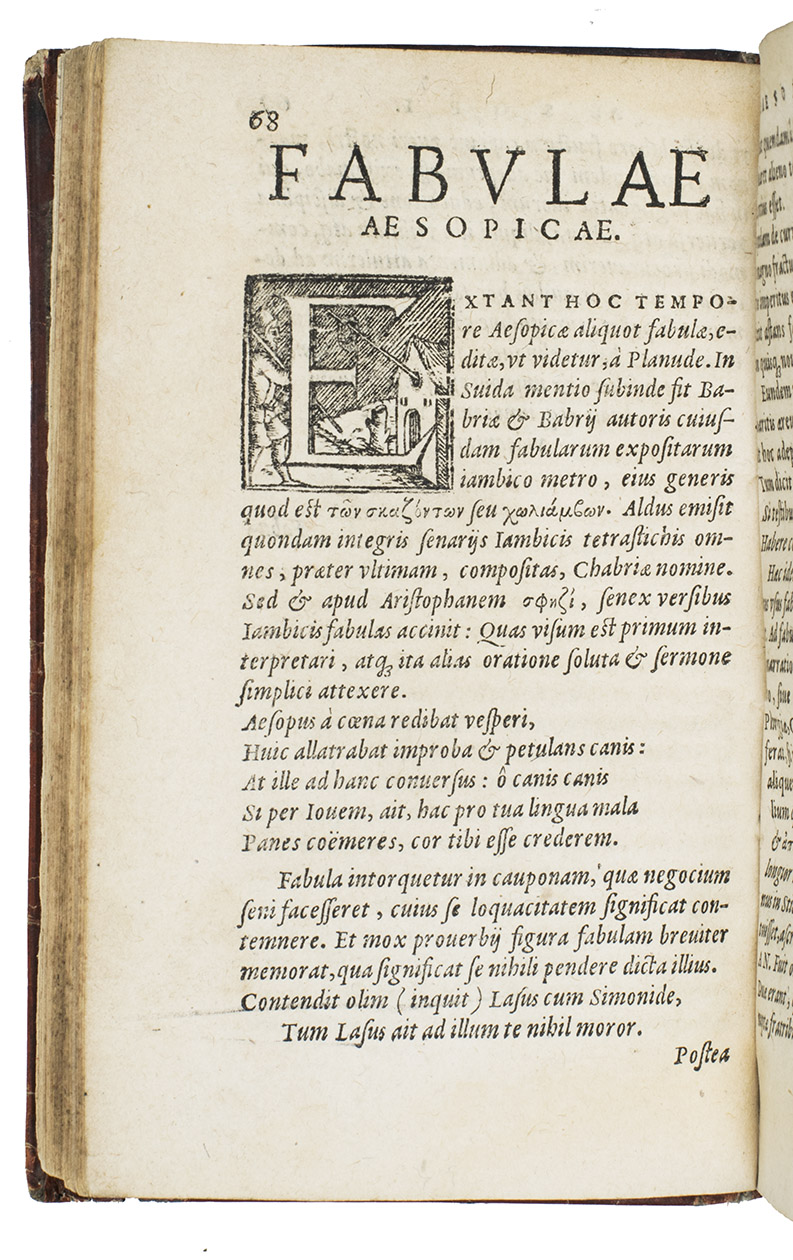 68
FABVLAE
AESOPICAE.
EXTANT HOC TEMPO-
re Aeſopicæ aliquot fabulæ, e-
ditæ, vt videtur, à Planude. In
Suida mentio ſubinde fit Ba-
briæ & Babrij autoris cuiuſ-
dam fabularum expoſitarum
iambico metro, eius generis
quod eſt τῶν σκαζόντων ſeu χωλιάμβων. Aldus emiſit
quondam integris ſenarijs Iambicis tetraſtichis om-
nes, præter vltimam, compoſitas, Chabriæ nomine.
Sed & apud Ariſtophanem σφηξί, ſenex verſibus
Iambicis fabulas accinit: Quas viſum eſt primum in-
terpretari, atqꝫ ita alias oratione ſoluta & ſermone
ſimplici attexere.
Aeſopus à cœna redibat veſperi,
Huic allatrabat improba & petulans canis:
At ille ad hanc conuerſus: ô canis canis
Si per Iouem, ait, hac pro tua lingua mala
Panes coëmeres, cor tibi eſſe crederem.
Fabula intorquetur in cauponam, quæ negocium
ſeni faceſſeret, cuius ſe loquacitatem ſignificat con-
temnere. Et mox prouerbij figura fabulam breuiter
memorat, qua ſignificat ſe nihili pendere dicta illius.
Contendit olim (inquit) Laſus cum Simonide,
Tum Laſus ait ad illum te nihil moror.
Poſtea